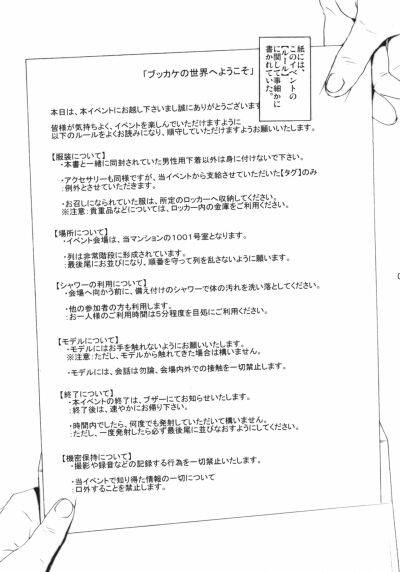 紙には、
このイベントの
【ルール】
に関して事細かに
書かれていた。
「ブッカケの世界へようこそ」
本日は、本イベントにお越し下さいまし誠にありがとうございます
皆様が気持ちよく、イベントを楽しんでいただけますように
以下のルールをよくお読みになり、順守していただけますようお願いいたします。
【服装について】
・本書と一緒に同封されていた男性用下着以外は身に付けないで下さい。
・アクセサリーも同様ですが、当イベントから支給させていただいた【タグ】のみ
例外とさせていただきます。
・お召しになられていた服は、所定のロッカーへ収納してください。
※注意:貴重品などについては、ロッカー内の金庫をご利用ください。
【場所について】
・イベント会場は、当マンションの1001号室となります。
・列は非常階段に形成されています。
:最後尾にお並びになり、順番を守って列を乱さないように願います。
【シャワーの利用について】
・会場へ向かう前に、備え付けのシャワーで体の汚れを洗い落としてください。
・他の参加者の方も利用します。
:お一人様のご利用時間は5分程度を目処にご利用ください。
【モデルについて】
・モデルにはお手を触れないようにお願いいたします。
※注意:ただし、モデルから触れてきた場合は構いません。
・モデルには、会話は勿論、会場内外での接触を一切禁止します。
【終了について】
・本イベントの終了は、ブザーにてお知らせいたします。
:終了後は、速やかにお帰り下さい。
・時間内でしたら、何度でも発射していただいて構いません。
:ただし、一度発射したら必ず最後尾に並びなおすようにしてください。
【機密保持について】
・撮影や録音などの記録する行為を一切禁止いたします。
・当イベントで知り得た情報の一切について
:口外することを禁止します。